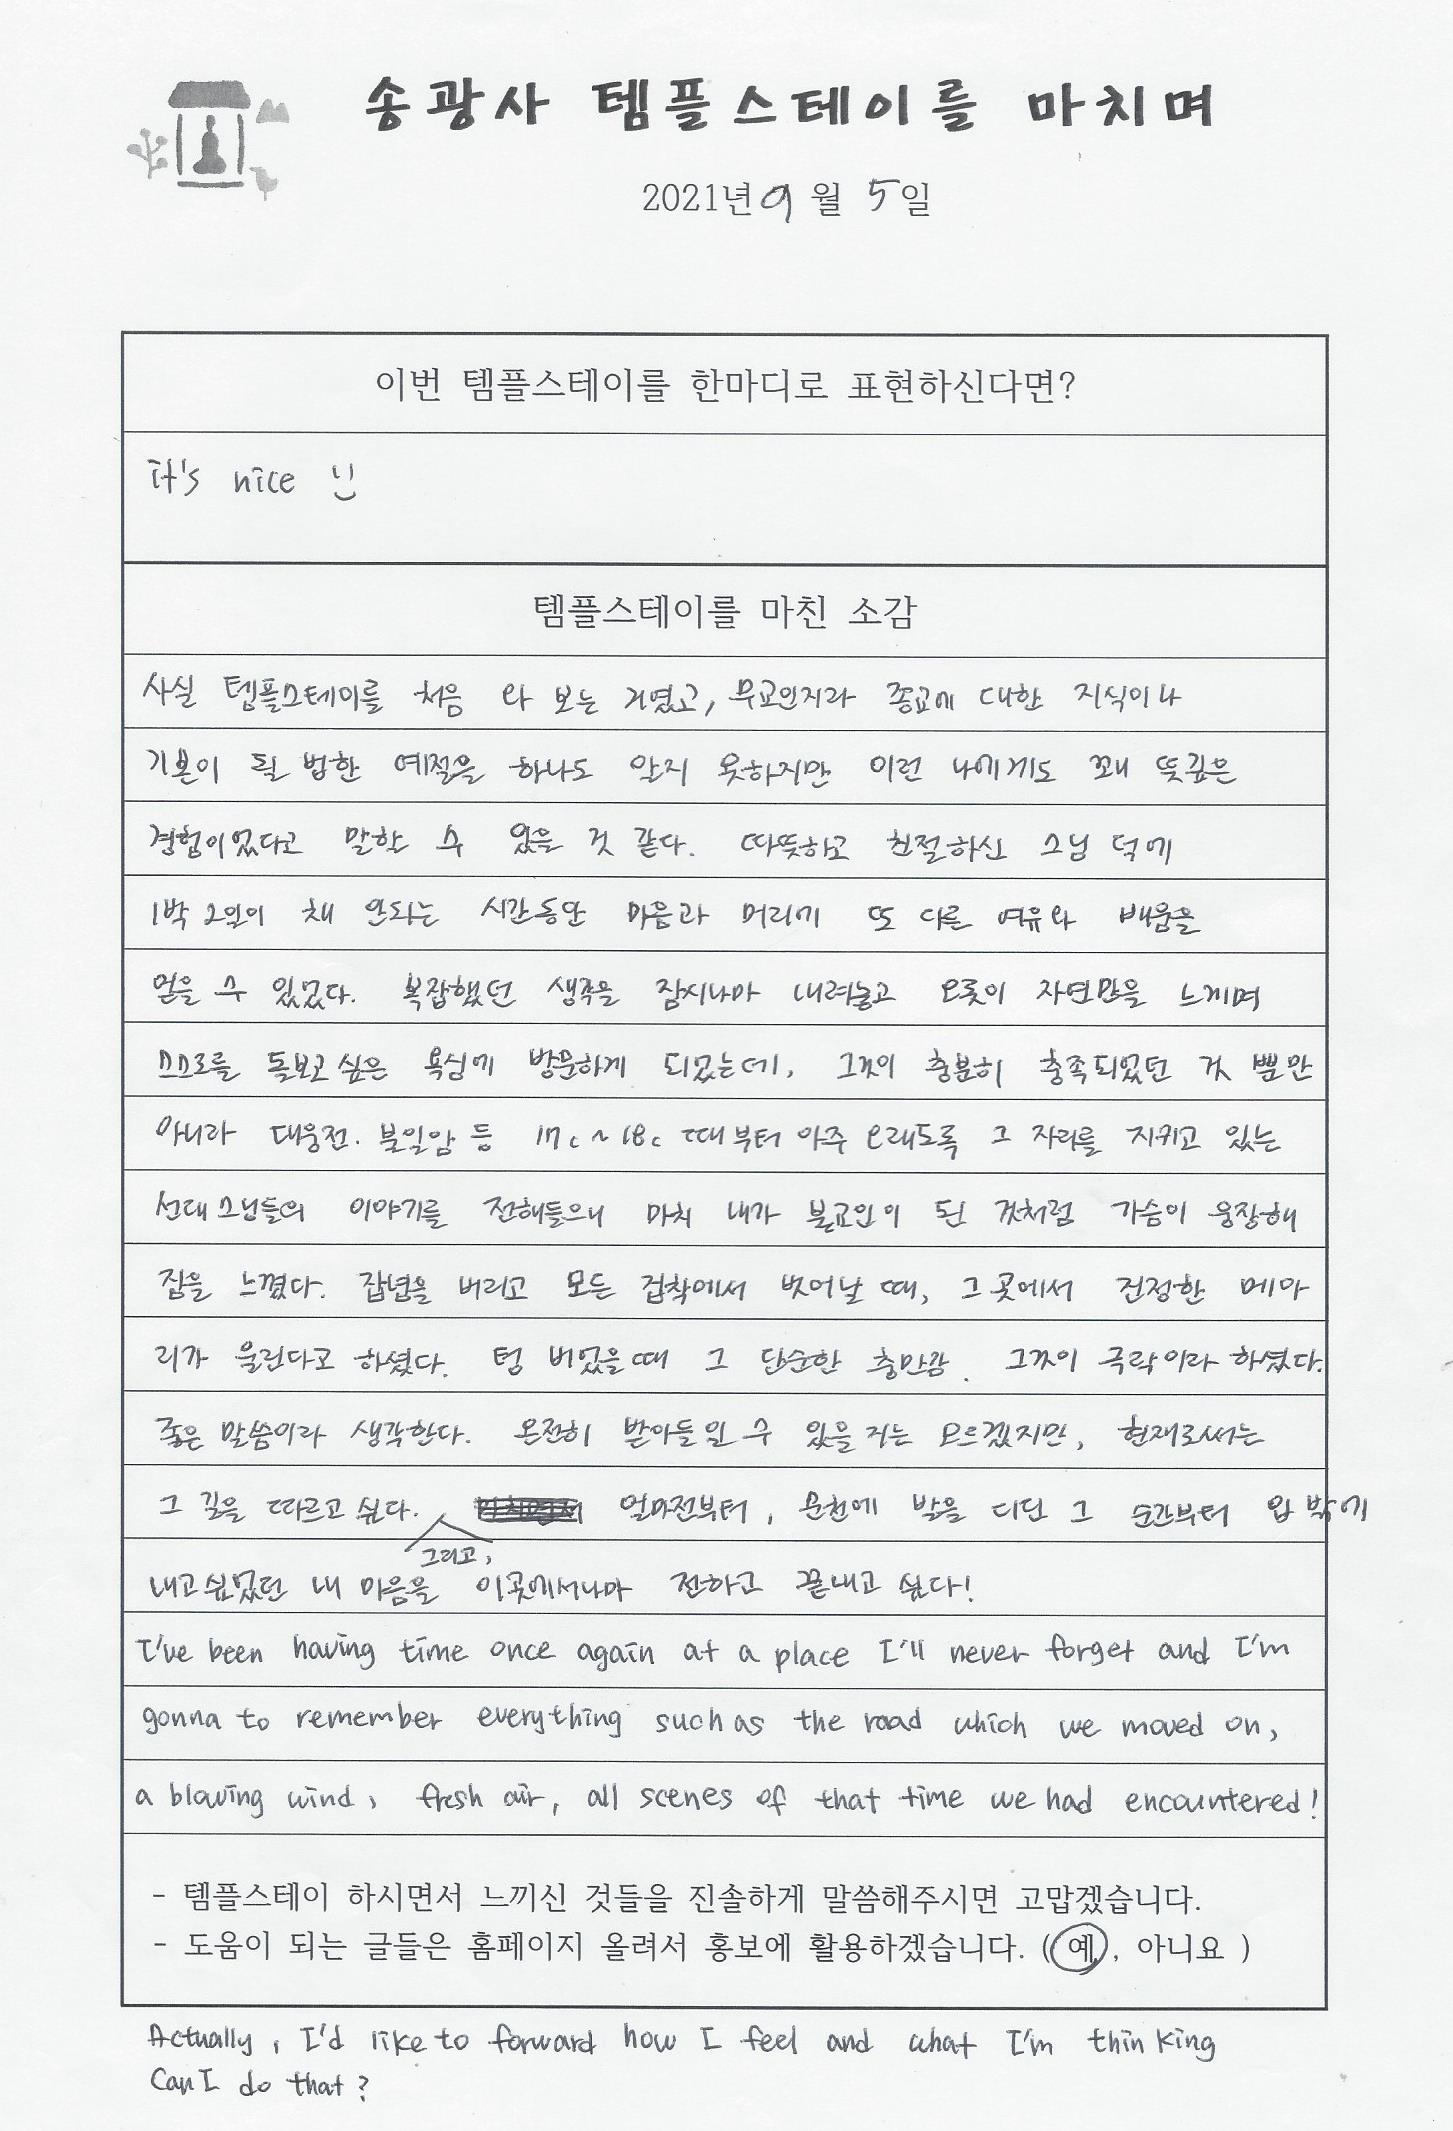 송광사 템플스테이를 마치며
2021년 9월 5일
이번 템플스테이를 한마디로 표현하신다면?
it's nice :)
템플스테이를 마친 소감
사실 템플스테이를 처음 와 보는 거였고, 무교인지라 종교에 대한 지식이나
기본이 될 법한 예절을 하나도 알지 못하지만 이런 나에게도 꽤 뜻깊은
경험이었다고 말할 수 있을 것 같다. 따뜻하고 친절하신 스님 덕에
1박 2일이 채 안되는 시간동안 마음과 머리에 또 다른 여유와 배움을
얻을 수 있었다. 복잡했던 생각을 잠시나마 내려놓고 오롯이 자연만을 느끼며
스스로를 돌보고 싶은 욕심에 방문하게 되었는데, 그것이 충분히 충족되었던 것 뿐만
아니라 대웅전. 불일암 등 17c ~ 18c 때부터 아주 오래도록 그 자리를 지키고 있는
선대 스님들의 이야기를 전해들으니 마치 내가 불교인이 된 것처럼 가슴이 웅장해
짐을 느꼈다. 잡념을 버리고 모든 집착에서 벗어날 때, 그 곳에서 진정한 메아
리가 울린다고 하셨다. 텅 비었을때 그 단순한 충만감. 그것이 극락이라 하셨다.
좋은 말씀이라 생각한다. 온전히 받아들일 수 있을 지는 모르겠지만, 현재로써는
그 길을 따르고 싶다. 그리고, 얼마전부터, 순천에 발을 디딘 그 순간부터 입 밖에
내고싶었던 내 마음을 이곳에서나마 전하고 끝내고 싶다!
I've been having time once again at a place I'll never forget and I'm
gonna to remember everything such as the road which we moved on,
a blowing wind, fresh air, all scenes of that time we had encountered!
- 템플스테이 하시면서 느끼신 것들을 진솔하게 말씀해주시면 고맙겠습니다.
- 도움이 되는 글들은 홈페이지 올려서 홍보에 활용하겠습니다. (예, 아니요 )
Actually, I'd like to forward how I feel and what I'm thinking
Can I do that?